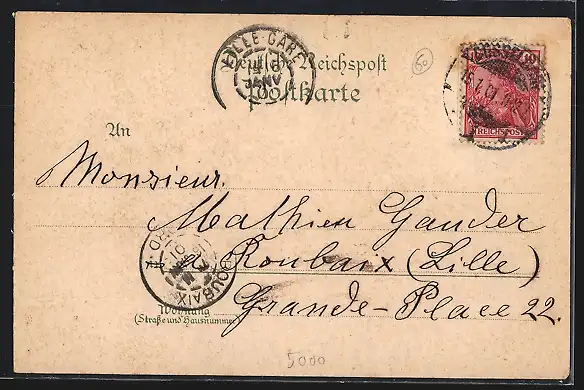 LILLE-GARE
JANV
01
60
Deutsche Reichspost
Postkarte
REICHSPOST
An
Monsieur
Mathieu Gander
Roubaix (Lille)
Grande-Place 22.
ROUBAIX
Wohnung
(Straße und Hausnummer)
5000